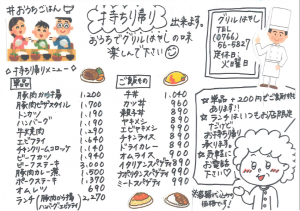 #おうちごはん
手持ち帰り 出来ます。
おうちでグリルはやしの味
楽しんで下さい
グリルはやし
TEL
(0766)
56-5827
定休日:
火曜日
お持ち帰りメニュー
単品
豚肉から揚 1,200
豚肉ピザスタイル 1,700
トンカツ 1,190
ハンバーグ 1,190
牛支里焼 1,290
エビフライ 1,660
チキンクリームコロッケ 1,140
ビーフカツ 1,940
ビーフステーキ 3,000
豚肉ロース煮 1,500
ポークステーキ 1,370
オムレツ 690
ランチ(豚肉から揚 ハンバーグ.エビフライ) 2,270
ご飯もの
牛丼 1,040
カツ丼 960
親子丼 890
ヤキメシ 840
エビヤキメシ 890
チキンライス 890
ドライカレー 890
オムライス 990
イタリアンスパゲティ 890
ナポリタンスパゲティ 990
ミートスパゲティ 990
☆単品+200円でご飯付に
あります!!
☆ランチはいつもお店限定
お持ち帰り
承ります。
☆お気軽に
お電話
下さい